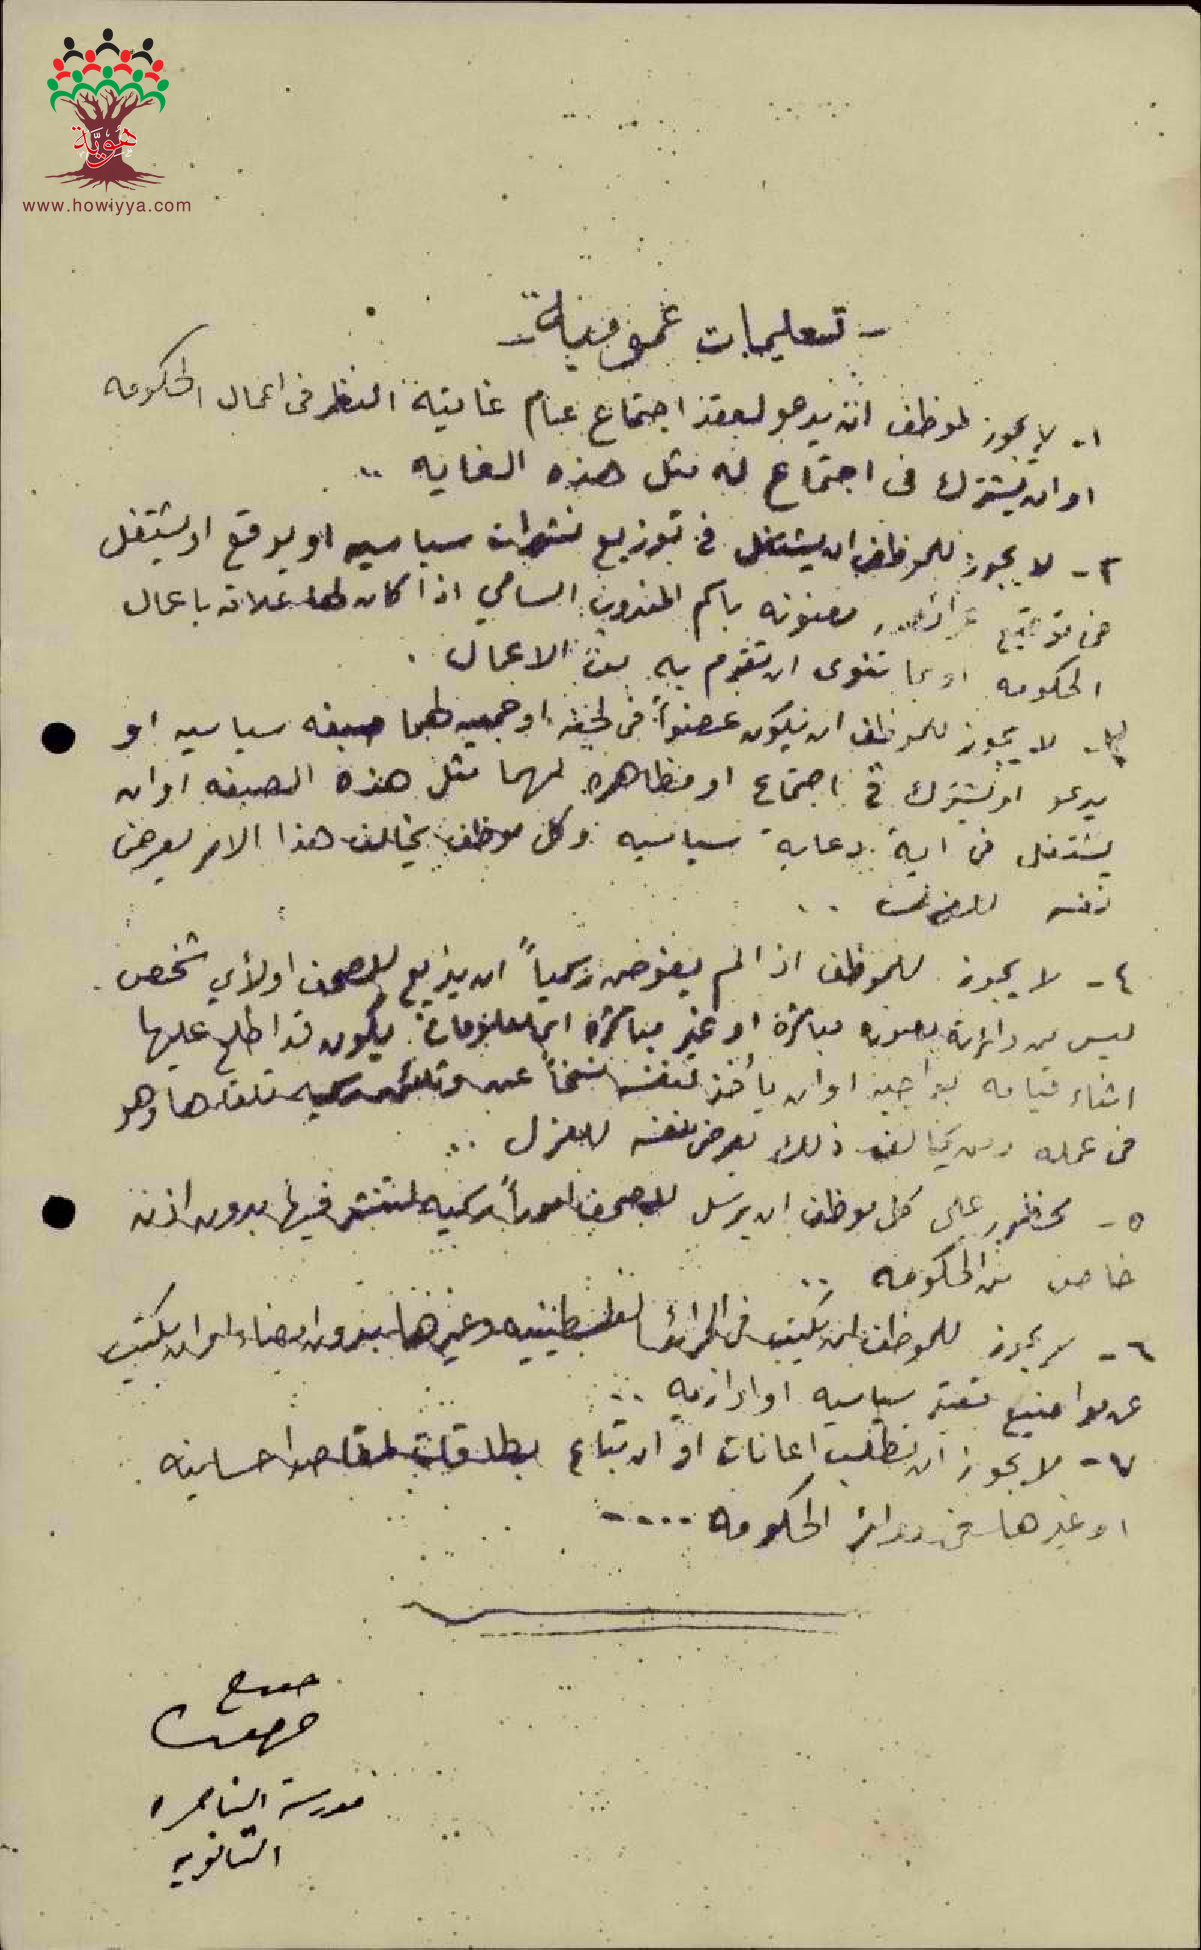 هَوِيَّة
www.howiyya.com
- تعليمات عمومية -
١- لا يجوز لموظف ان يدعو لعقد اجتماع عام غايته النظر في اعمال الحكومه
او ان يشترك في اجتماع له مثل هذه الغايه ..
٢- لا يجوز للموظف ان يشتغل في توزيع نشرات سياسيه او يوقع او يشتغل
في توقيع عرائض معنونه باسم المندوب السامي اذا كان لها علاقه باعمال
الحكومه او بما تنوى ان تقوم به من الاعمال .
٣- لا يجوز للموظف ان يكون عضواً في لجنه او جمعيه لهما صبغه سياسيه او
يدعو او يشترك في اجتماع او مظاهره لهما مثل هذه الصبغه او ان
يشتغل في اية دعاية سياسيه وكل موظف يخالف هذا الامر يعرض
نفسه للعزل ..
٤- لا يجوز للموظف اذا لم يفوض رسمياً ان يذيع للصحف او لأي شخص
ليس من دائرته بصوره مباشرة او غير مباشرة اية معلومات يكون قد اطلع عليها
اثناء قيامه بواجبه او ان يأخذ لنفسه نسخاً عن وثائق رسميه تلقاها وهو
في عمله ومن يخالف ذلك يعرض نفسه للعزل ..
٥- محظور على كل موظف ان يرسل للصحف اموراً رسميه لتنشر فيها بدون اذن
خاص من الحكومه ..
٦- لا يجوز للموظف ان يكتب في الجرائد الفلسطينيه وغيرها بدون امضاء او ان يكتب
عن مواضيع سياسيه او اداريه ..
٧- لا يجوز ان تطلب اعانات او ان تباع بطاقات لمقاصد احسانيه
او غيرها في دوائر الحكومه ....
مدرسة الناصره
الثانويه